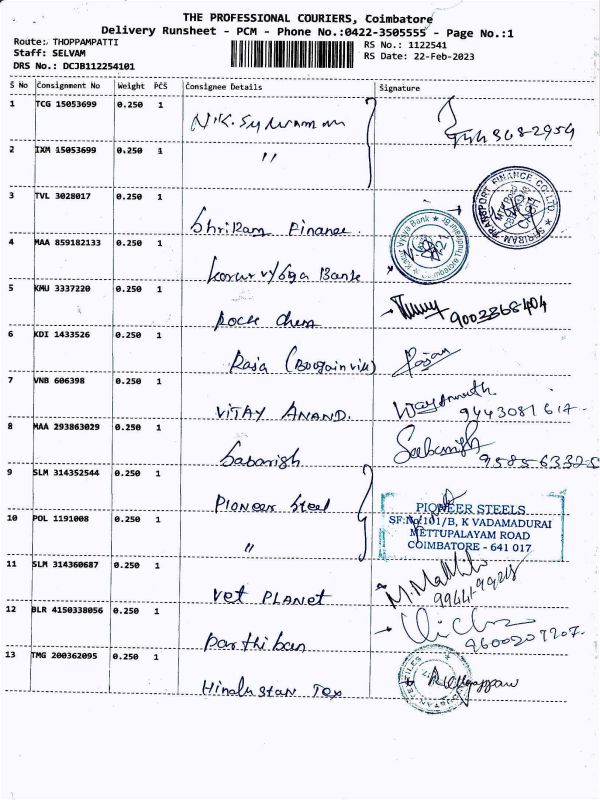 THE PROFESSIONAL COURIERS, Coimbatore
Delivery Runsheet - PCM - Phone No.:0422-3505555 - Page No.:1
Route: THOPPAMPATTI
Staff: SELVAM
DRS No.: DCJB112254101
RS No.: 1122541
RS Date: 22-Feb-2023
S No Consignment No Weight PCS Consignee Details Signature
1 TCG 15053699 0.250 1
2 IXM 15053699 0.250 1 "
3 TVL 3028017 0.250 1 Shriram Finance.
4 MAA 859182133 0.250 1 Karur vysya Bank
5 KMU 3337220 0.250 1 Rock Chem
9002368404
6 KDI 1433526 0.250 1 Raja
7 VNB 606398 0.250 1 VIJAY ANAND.
8 MAA 293863029 0.250 1 Sabarish
9 SLM 314352544 0.250 1 Pioneer Steel
10 POL 1191008 0.250 1 "
PIONEER STEELS
SF.No 101/B, K VADAMADURAI
METTUPALAYAM ROAD
COIMBATORE - 641 017
11 SLM 314360687 0.250 1 Vet PLANET
12 BLR 4150338056 0.250 1 Parthiban
9600207207.
13 TMG 200362095 0.250 1 Hindustan Tex